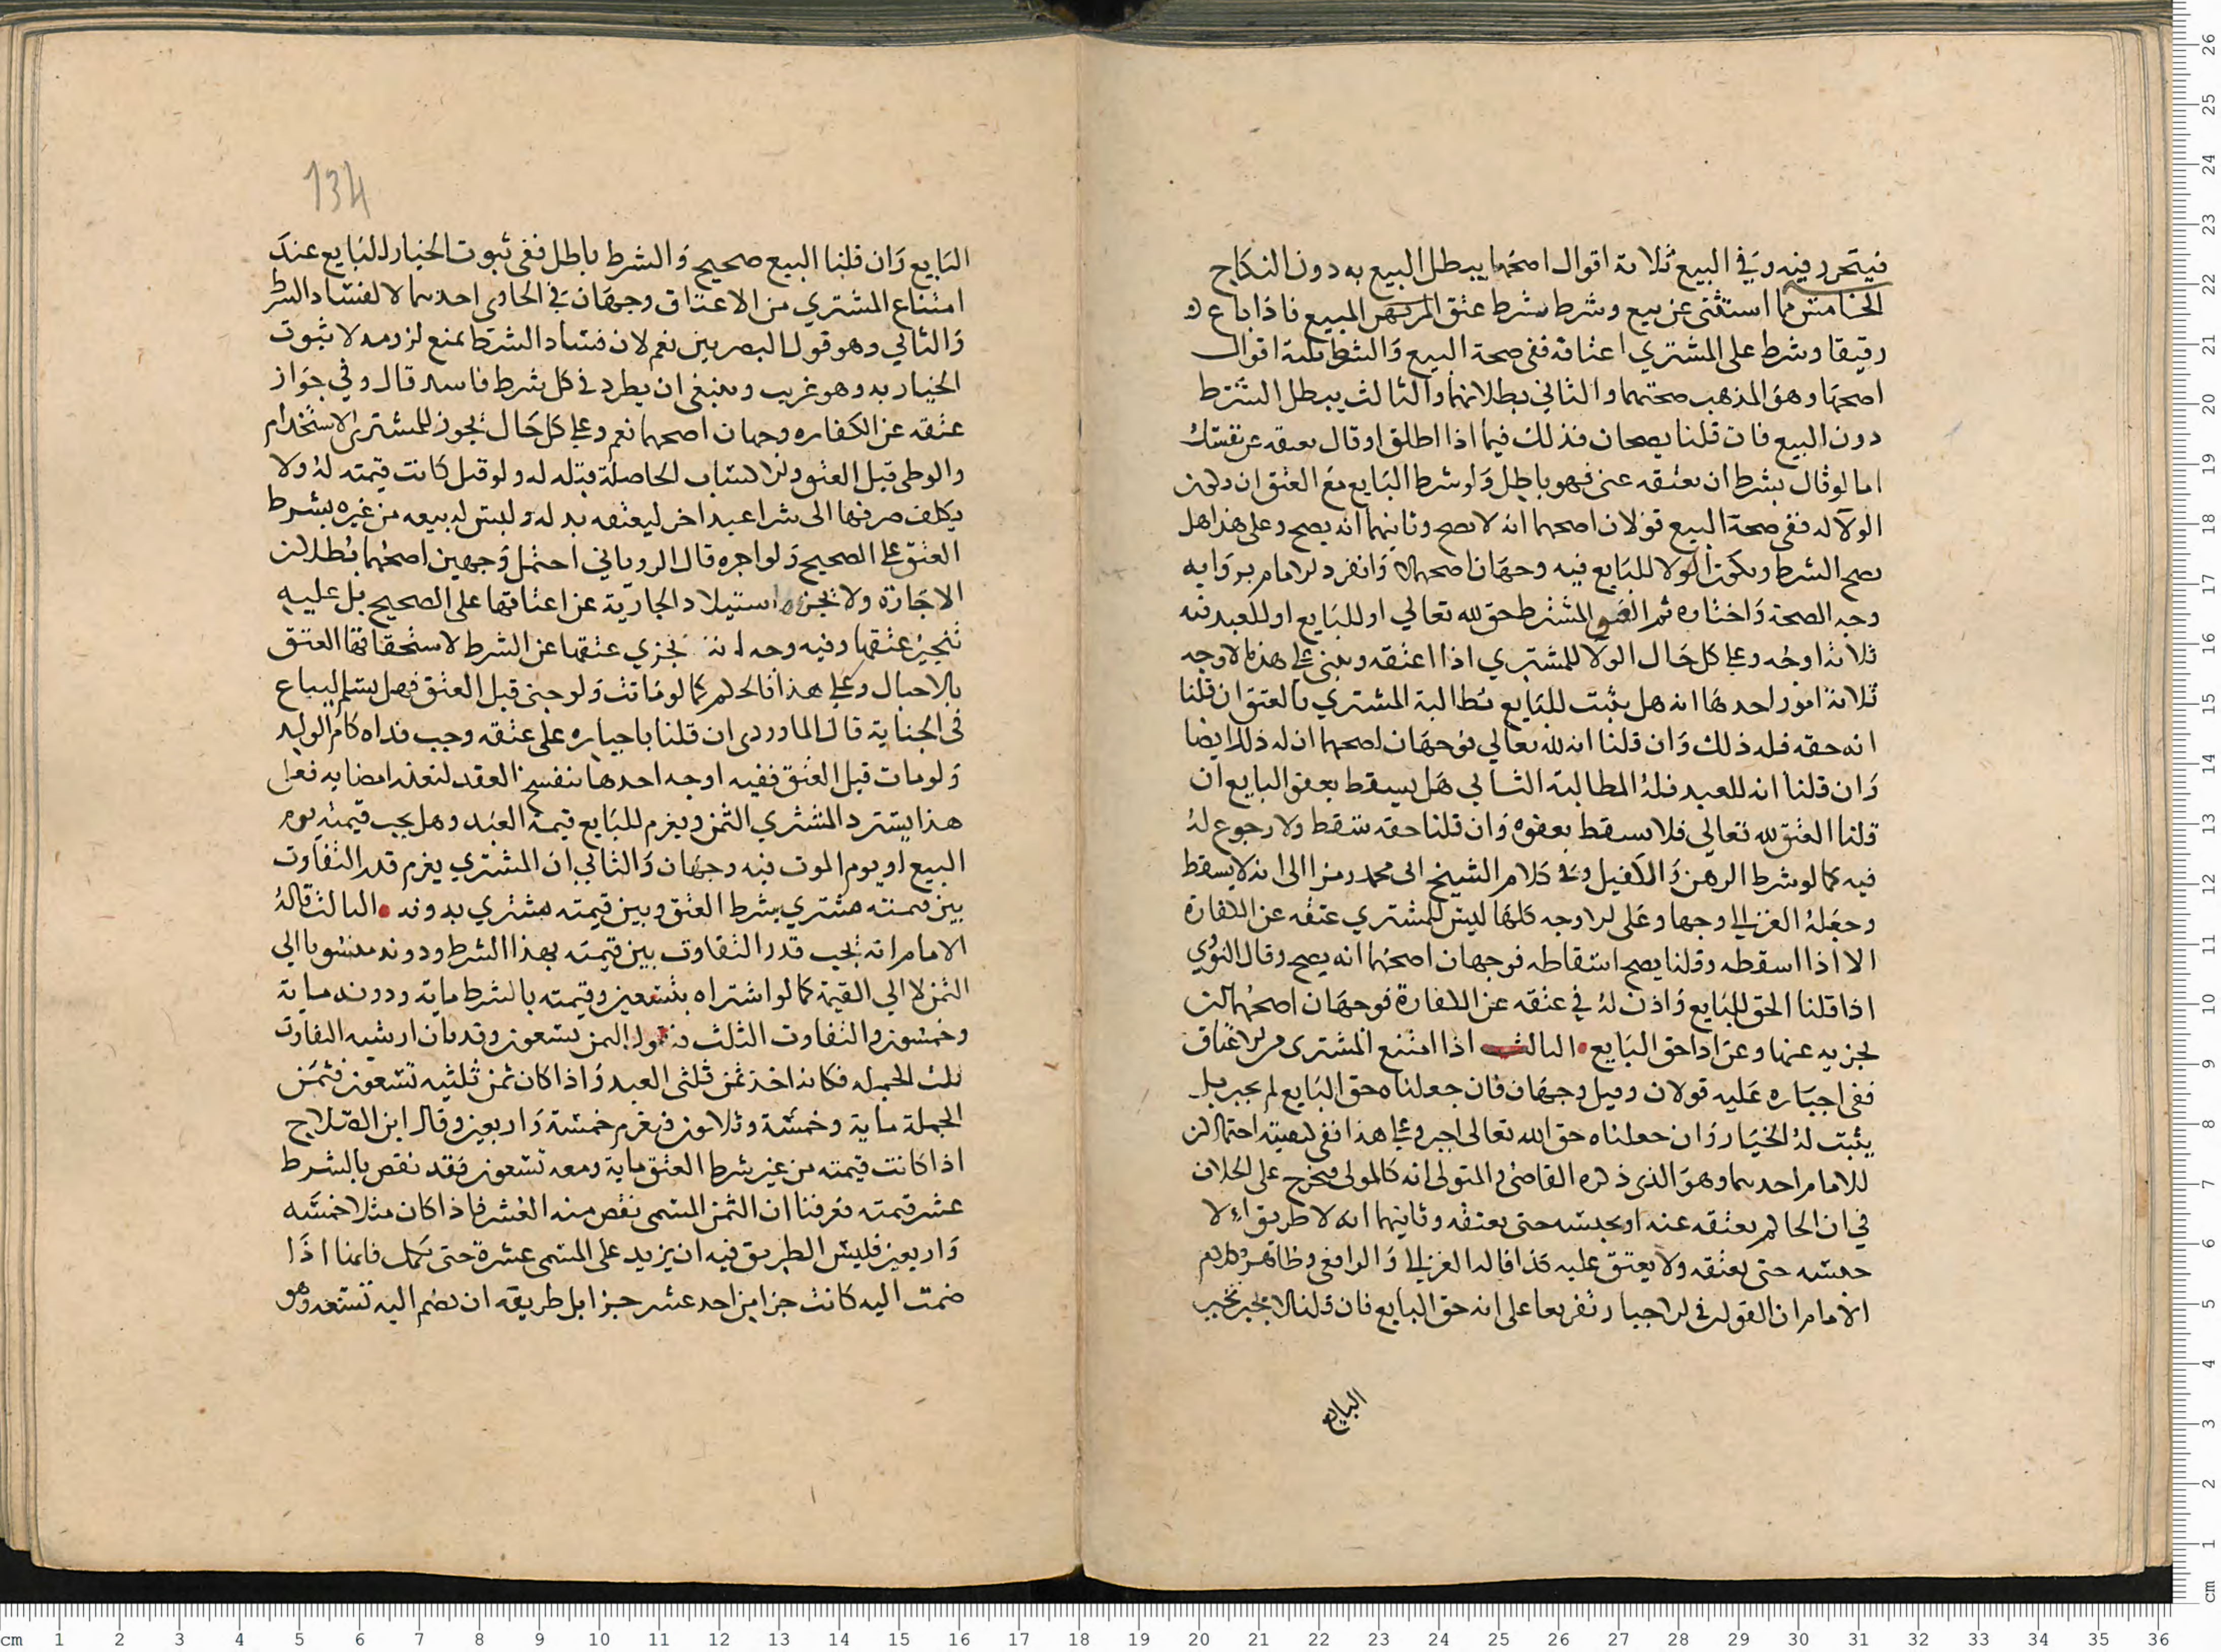 فيتحرر فيه وفي البيع ثلاثة اقوال اصحها يبطل البيع به دون النكاح
الخامس مما استثنى عن بيع وشرط شرط عتق المبيع فاذا باع
رقيقا وشرط على المشتري اعتاقه ففي صحة البيع والشرط ثلثة اقوال
اصحها وهو المذهب صحتهما والثاني بطلانهما والثالث يبطل الشرط
دون البيع فان قلنا يصحان فذلك فيما اذا اطلق او قال بعتقه عن نفسك
اما لو قال بشرط ان تعتقه عني فهو باطل ولو شرط البايع مع العتق ان يكون
الولا له ففي صحة البيع قولان اصحهما انه لا يصح وثانيهما انه يصح وعلى هذا هل
يصح الشرط ويكون الولا للبايع فيه وجهان اصحهما لا وانفرد الامام برواية
وجه الصحة واختاره ثم العتق المشترط حق لله تعالي او للبايع او للعبد فيه
ثلاثة اوجه وعلى كل حال الولا للمشتري اذا اعتقه وينبني على هذه الاوجه
ثلاثة امور احدها انه هل يثبت للبايع مطالبة المشتري بالعتق ان قلنا
انه حقه فله ذلك وان قلنا انه لله تعالي فوجهان اصحهما ان له ذلك ايضا
وان قلنا انه للعبد فله المطالبة الثاني هل يسقط بعفو البايع ان
قلنا العتق لله تعالي فلا يسقط بعفوه وان قلنا حقه سقط ولا رجوع له
فيه كما لو شرط الرهن والكفيل وفي كلام الشيخ ابي محمد رمز الى انه لا يسقط
وجعله الغزالي وجها وعلى الاوجه كلها ليس للمشتري عتقه عن الكفارة
الا اذا اسقطه وقلنا يصح اسقاطه فوجهان اصحهما انه يصح وقال النووي
اذا قلنا الحق للبايع واذن له في عتقه عن الكفارة فوجهان اصحهما ان
يجزيه عنها وعن اداحق البايع الثالث اذا امتنع المشتري من الاعتاق
ففي اجباره عليه قولان وقيل وجهان فان جعلناه حق البايع لم يجبر بل
يثبت له الخيار وان جعلناه حق الله تعالى اجبر وعلى هذا ففي كيفيته احتمالان
للامام احدهما وهو الذي ذكره القاضي والمتولي انه كالمولى فيخرج على الخلاف
في ان الحاكم يعتقه عنه او يحبسه حتى يعتقه وثانيهما انه لا طريق الا
حبسه حتى يعتقه ولا يعتق عليه كذا قاله الغزالي والرافعي وظاهر كلام
الامام ان القولين في الاجبار تفريعا على انه حق البايع فان قلنا لا يجبر تخير
البايع
134
البايع وان قلنا البيع صحيح والشرط باطل ففي ثبوت الخيار للبايع عند
امتناع المشتري من الاعتاق وجهان في الحاوي احدهما لا لفساد الشرط
والثاني وهو قول البصريين نعم لان فساد الشرط يمنع لزومه لا ثبوت
الخيار به وهو غريب وينبغي ان يطرد في كل شرط فاسد قال وفي جواز
عتقه عن الكفاره وجهان اصحهما نعم وعلى كل حال يجوز للمشتري الاستخدام
والوطي قبل العتق والاكساب الحاصلة قبله له ولو قتل كانت قيمته له ولا
يكلف صرفها الى شرا عبد اخر ليعتقه بدله وليس له بيعه من غيره بشرط
العتق على الصحيح ولو اجره قال الروياني احتمل وجهين اصحهما بطلان
الاجارة ولا يجزي استيلاد الجارية عن اعتاقها على الصحيح بل عليه
تنجيز عتقها وفيه وجه انه يجزي عتقها عن الشرط لاستحقاقها العتق
بالاحبال وعلى هذا فالحكم كما لو ماتت ولو جنى قبل العتق فهل يسلم ليباع
في الجناية قال الماوردي ان قلنا باجباره على عتقه وجب فداه كام الولد
ولو مات قبل العتق ففيه اوجه احدها ينفسخ العقد لتعذر امضايه فعلى
هذا يسترد المشتري الثمن ويغرم للبايع قيمة العبد وهل يجب قيمته يوم
البيع او يوم الموت فيه وجهان والثاني ان المشتري يغرم قدر التفاوت
بين قيمته مشتري بشرط العتق وبين قيمته مشتري بدونه الثالث قاله
الامام انه يجب قدر التفاوت بين قيمته بهذا الشرط ودونه منسوبا الي
الثمن لا الي القيمة كما لو اشتراه بتسعين وقيمته بالشرط ماية ودونه ماية
وخمسون والتفاوت الثلث فنقول الثمن تسعون وقد بان ان نسبة التفاوت
ثلث الجملة فكانه اخذ ثمن ثلثي العبد واذا كان ثمن ثلثيه تسعون فثمن
الجملة ماية وخمسة وثلاثون فيغرم خمسة واربعين وقال ابن الصلاح
اذا كانت قيمته من غير شرط العتق ماية ومعه تسعون فقد نقص بالشرط
عشر قيمته فعرفنا ان الثمن المسمى نقص منه العشر فاذا كان مثلا خمسه
واربعين فليس الطريق فيه ان يزيد على المسمى عشرة حتى يكمل فاننا اذا
ضمت اليه كانت جزا من احد عشر جزا بل طريقه ان يضم اليه تسعه وهو